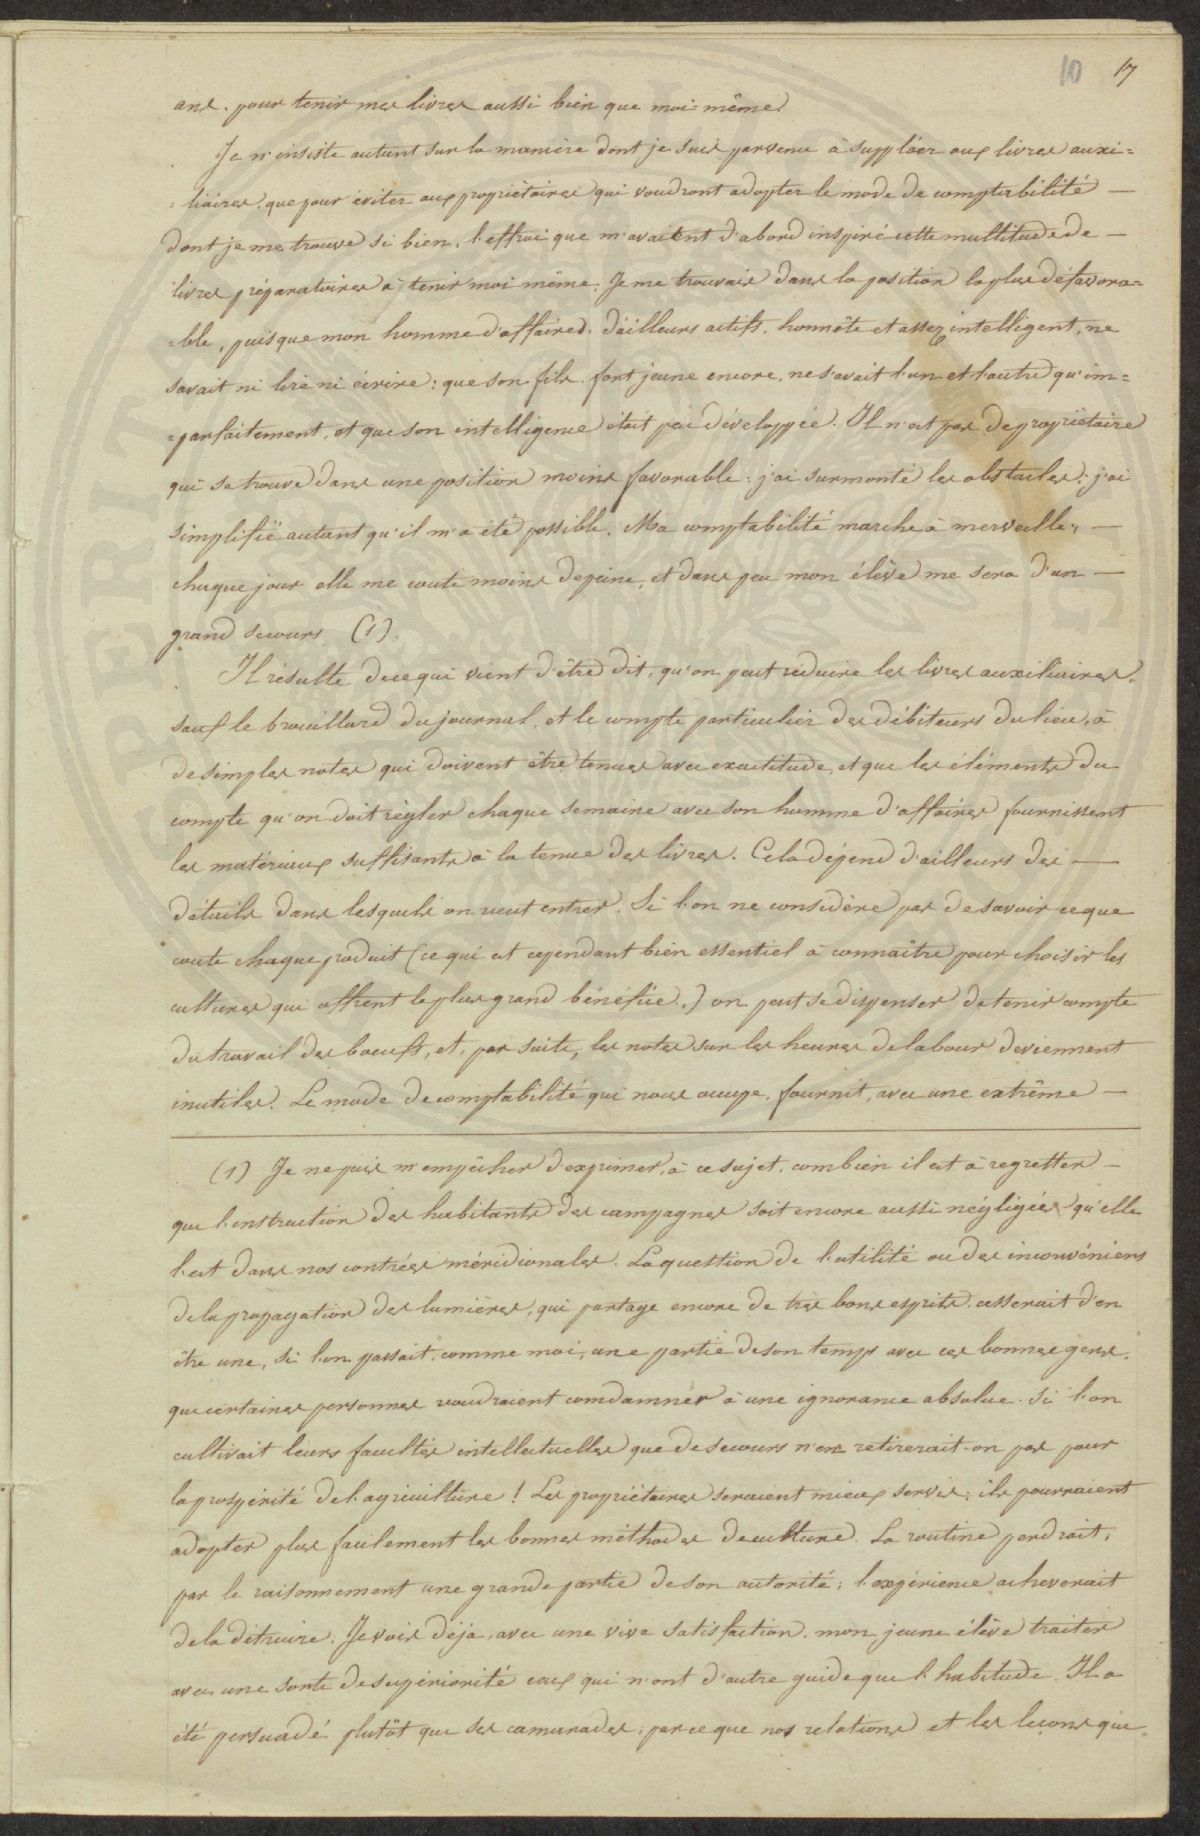 10 17
ans. pour tenir mes livres aussi bien que moi-même.
Je n'insiste autant sur la manière dont je suis parvenu à suppléer aux livres auxi=
=liaires, que pour éviter aux propriétaires qui voudront adopter le mode de comptabilité —
dont je me trouve si bien, l'effroi que m'avaient d'abord inspiré cette multitude de —
livres préparatoires à tenir moi même. Je me trouvais dans la position la plus défavora=
=ble, puisque mon homme d'affaires. d'ailleurs actifs, honnête et assez intelligent, ne
savait ni lire ni écrire: que son fils. fort jeune encore, ne savait l'un et l'autre qu'im=
=parfaitement, et que son intelligence était peu développée. Il n'est pas de propriétaire
qui se trouve dans une position moins favorable: j'ai surmonté les obstacles; j'ai
simplifié autant qu'il m'a été possible. Ma comptabilité marche à merveille; —
chaque jour elle me coute moins de peine, et dans peu mon élève me sera d'un —
grand secours (1).
Il résulte de ce qui vient d'être dit, qu'on peut réduire les livres auxiliaires.
sauf le brouillard du journal, et le compte particulier des débiteurs du lieu, à
de simples notes qui doivent être tenues avec exactitude, et que les éléments du
compte qu'on doit règler chaque semaine avec son homme d'affaires fournissent
les matériaux suffisants à la tenue des livres. Cela dépend d'ailleurs des —
détails dans lesquels on veut entrer. Si l'on ne considère pas de savoir ce que
coute chaque produit (ce qui est cependant bien essentiel à connaître pour choisir les
cultures qui offrent le plus grand bénéfice.) on peut se dispenser de tenir compte
du travail des boeufs, et, par suite, les notes sur les heures de labour deviennent
inutiles. Le mode de comptabilité qui nous occupe, fournit, avec une extrême —
(1) Je ne puis m'empêcher d'exprimer, à ce sujet, combien il est à regretter —
que l'instruction des habitants des campagnes soit encore aussi négligée qu'elle
l'est dans nos contrées méridionales. La question de l'utilité ou des inconvéniens
de la propagation des lumières, qui partage encore de très bons esprits, cesserait d'en
être une, si l'on passait, comme moi, une partie de son temps avec ces bonnes gens,
que certaines personnes voudraient comdamner à une ignorance absolue. Si l'on
cultivait leurs facultés intellectuelles que de secours n'en retirerait-on pas pour
la prospérité de l'agriculture! Les propriétaires seraient mieux servis; ils pourraient
adopter plus facilement les bonnes méthodes de culture. La routine perdrait,
par le raisonnement une grande partie de son autorité; l'expérience acheverait
de la détruire. Je vois déjà, avec une vive satisfaction, mon jeune élève traiter
avec une sorte de supériorité ceux qui n'ont d'autre guide que l'habitude. Il a
été persuadé plutôt que ses camarades, parce que nos relations et les leçons que